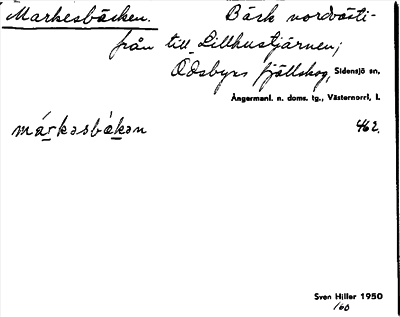 Markesbäcken. Bäck nordväst i-
från till Lillhustjärnen;
Ödsbyns fjällskog, Sidensjö sn,
Ångermanl. n. doms. tg., Västernorrl. l.
márkasbák̲an 462.
Sven Hiller 1950
/60